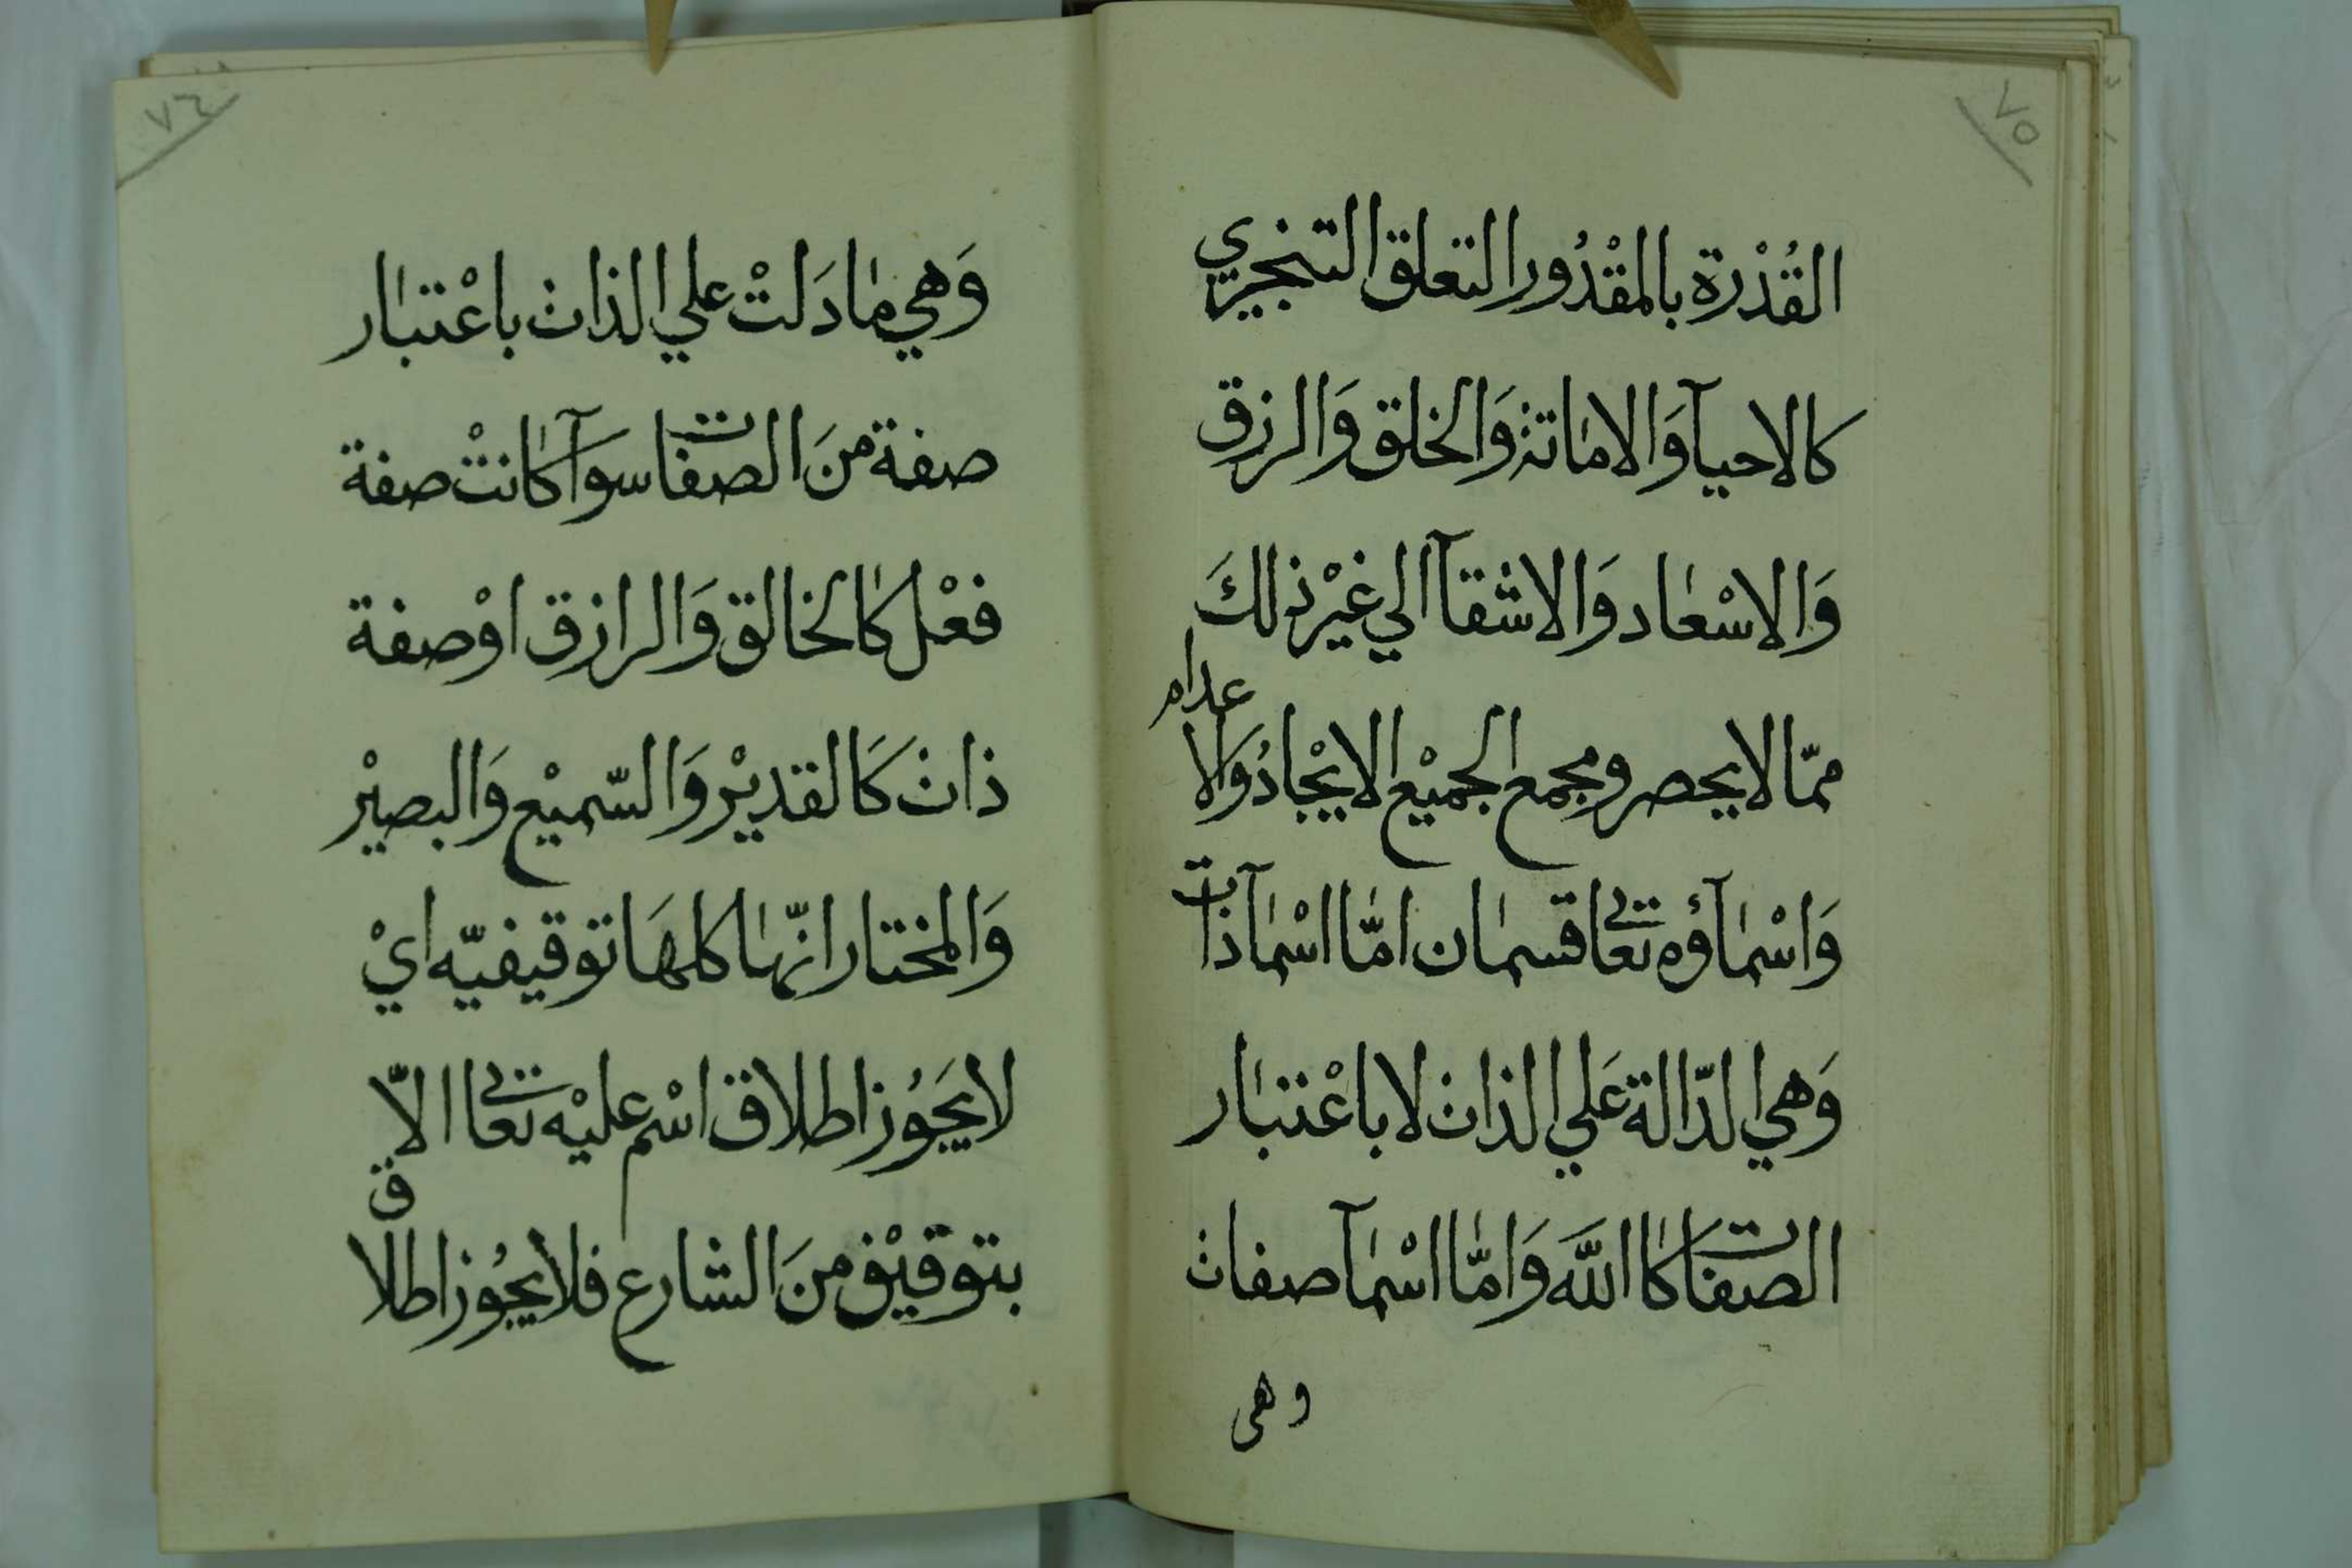 ٧٥
القُدْرة بالمقْدُور التعلق التنجيزي
كالاحيآ وَالاماتة وَالخلق وَالرزق
وَالاسْعاد وَالاشقآ الي غيْر ذلكَ
ممّا لا يحصر ومجمع الجميْع الايْجادُ وَالاعدام
وَاسْمآؤه تعالى قسمان امّا اسْمآ ذات
وَهي الدّالة عَلي الذات لا باعْتبار
الصفات كالله وَامّا اسْمآ صفات
وهى
٧٦
وَهي ما دَلتْ علي الذات باعْتبار
صفة منَ الصفات سوَآ كانتْ صفة
فعْل كالخالق وَالرازق اوْ صفة
ذات كَالقديْر وَالسّميْع وَالبصيْر
وَالمختار انّها كلهَا توقيفيّه ايْ
لا يَجَوُز اطلاق اسْم عليْه تعالى الاّ
بتوقيْف منَ الشارع فلا يجُوز اطلاق